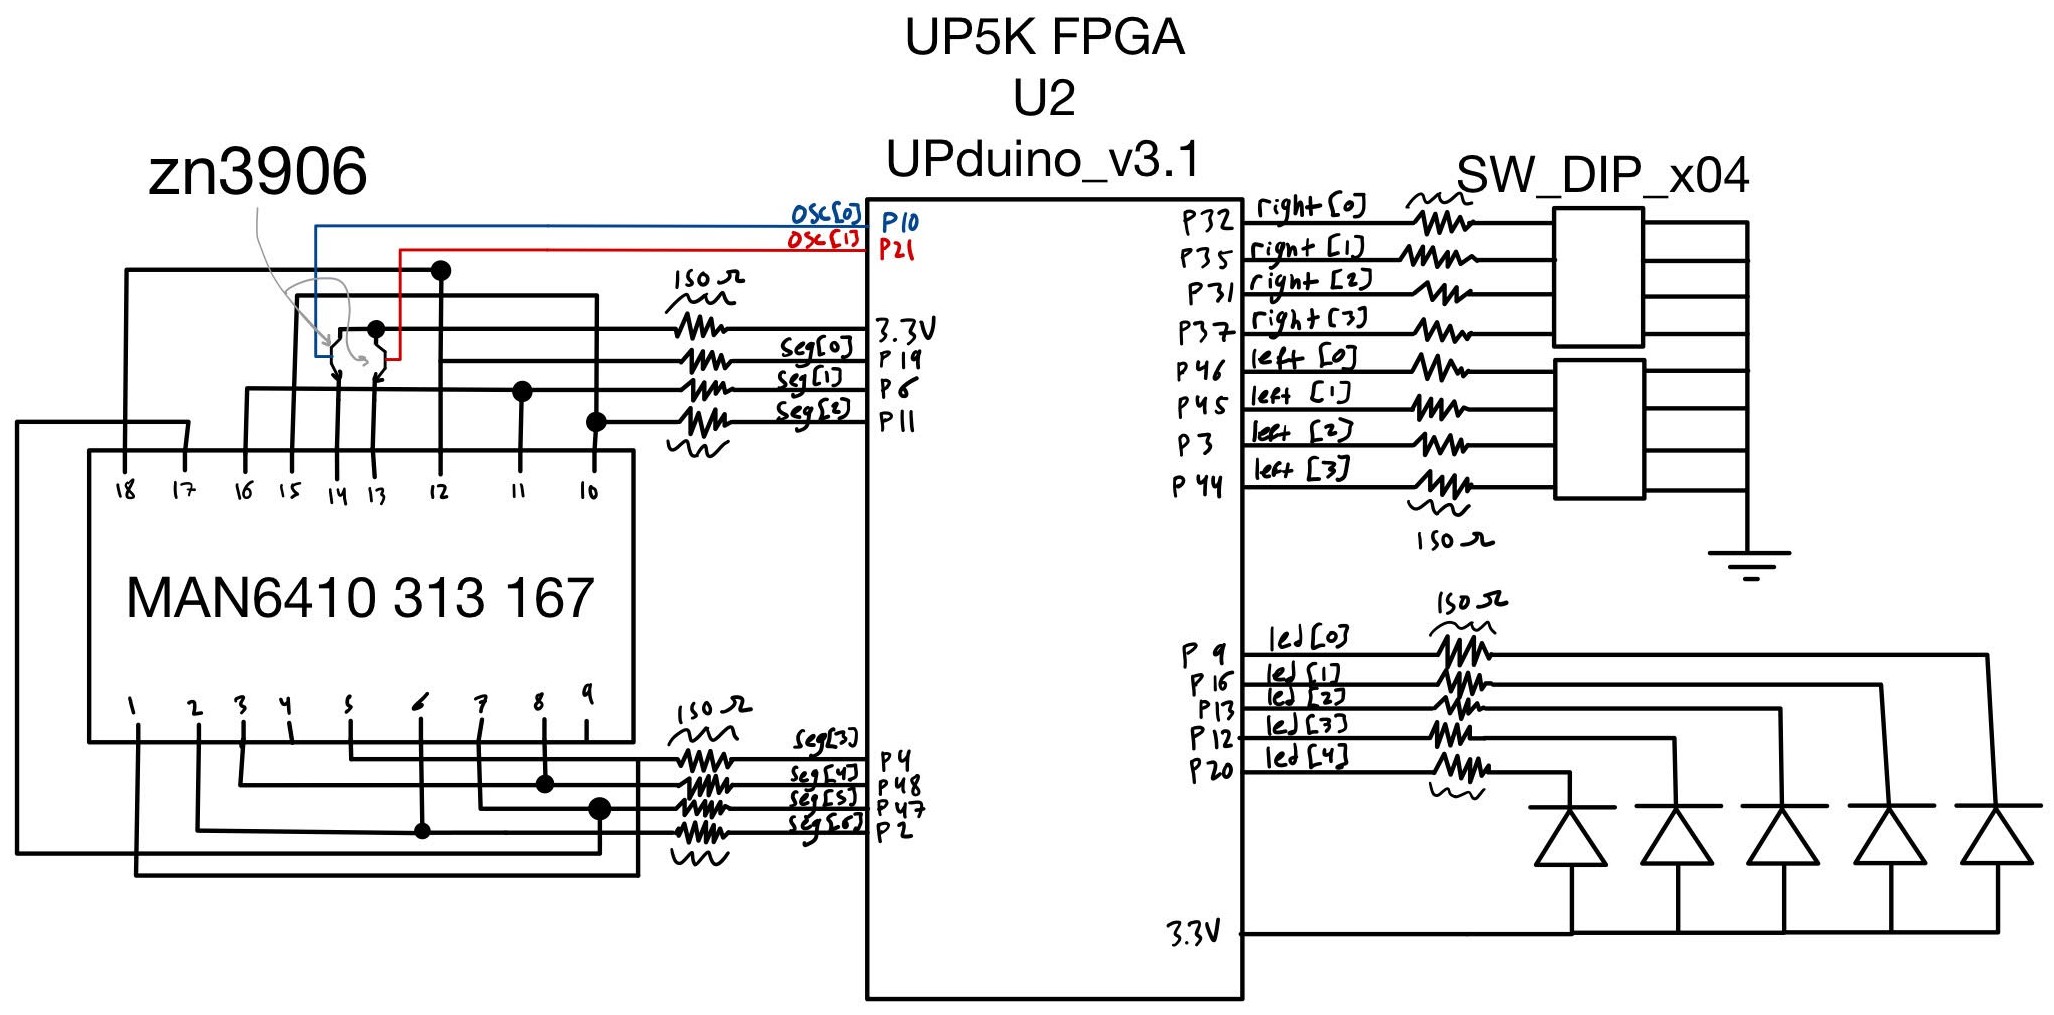 UP5K FPGA
U2
UPduino_v3.1
zn3906
SW_DIP_x04
osc[0] P10
osc[1] P21
150 Ω
3.3V
seg[0] P19
seg[1] P6
seg[2] P11
18 17 16 15 14 13 12 11 10
MAN6410 313 167
1 2 3 4 5 6 7 8 9
150 Ω
seg[3] P4
seg[4] P48
seg[5] P47
seg[6] P2
P32 right [0]
P35 right [1]
P31 right [2]
P37 right [3]
P46 left [0]
P45 left [1]
P3 left [2]
P44 left [3]
150 Ω
150 Ω
P9 led[0]
P16 led[1]
P13 led[2]
P12 led[3]
P20 led[4]
3.3V